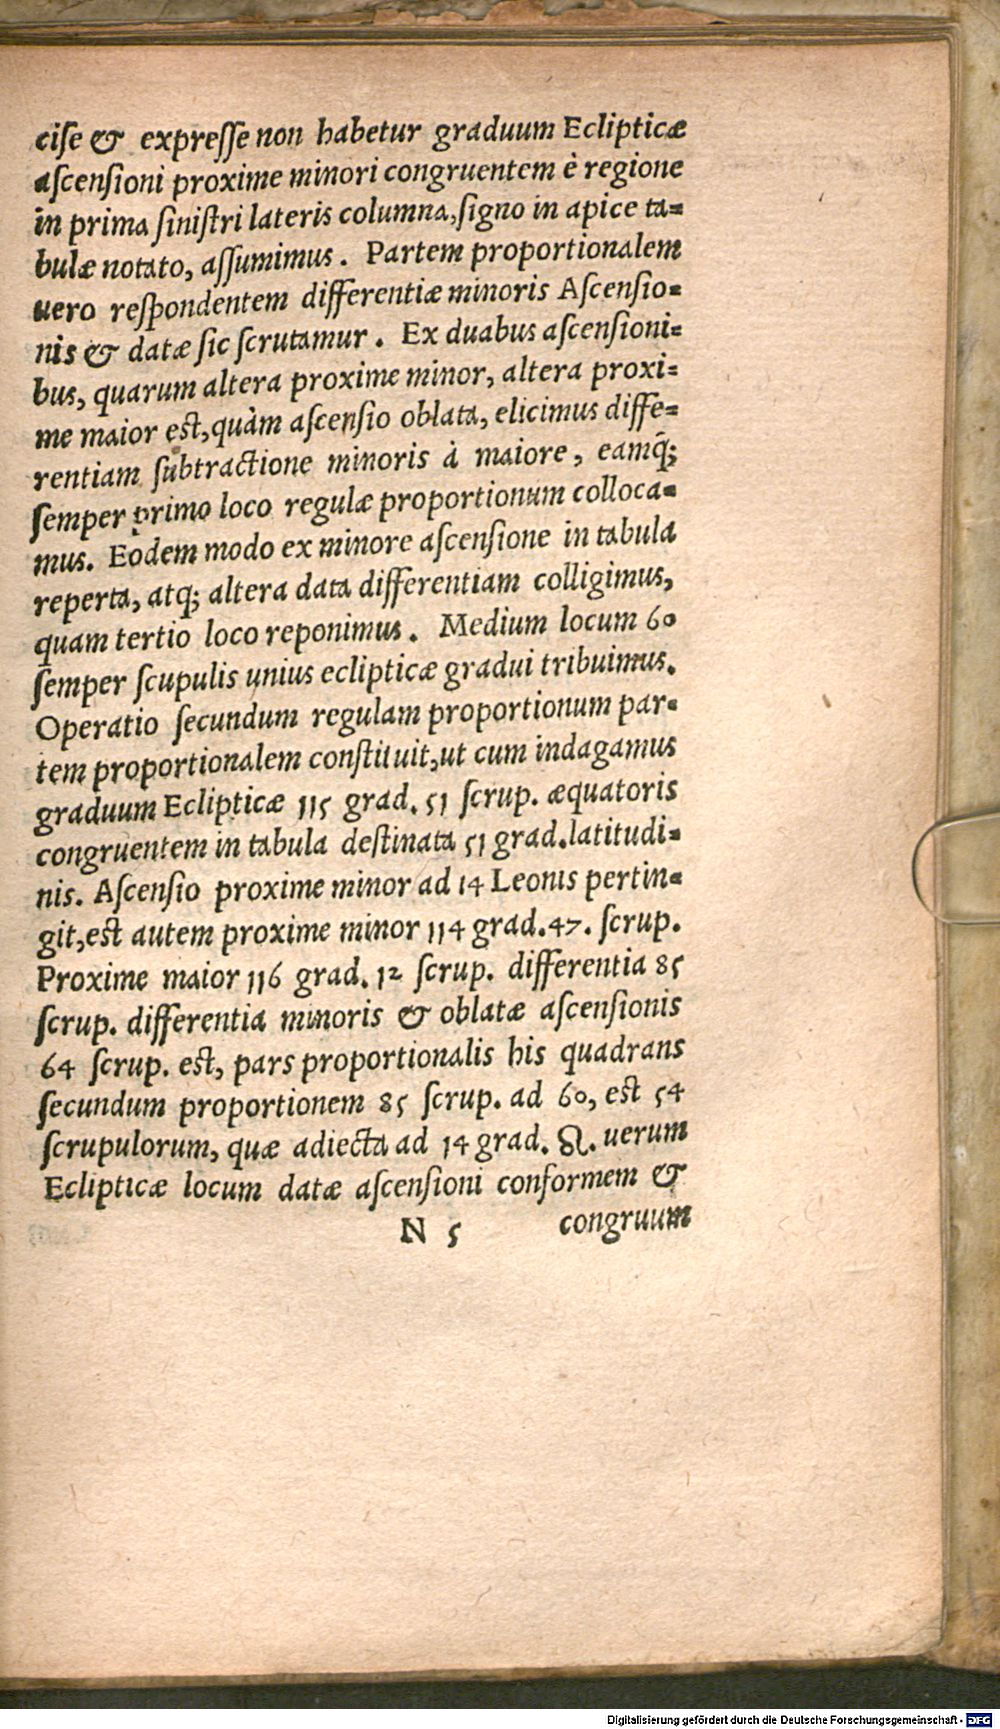 cise & expresse non habetur graduum Eclipticæ
ascensioni proxime minori congruentem è regione
in prima sinistri lateris columna, signo in apice ta=
bulæ notato, assumimus. Partem proportionalem
uero respondentem differentiæ minoris Ascensio=
nis & datæ sic scrutamur. Ex duabus ascensioni=
bus, quarum altera proxime minor, altera proxi=
me maior est, quàm ascensio oblata, elicimus diffe=
rentiam subtractione minoris à maiore, eamq̃;
semper primo loco regulæ proportionum colloca=
mus. Eodem modo ex minore ascensione in tabula
reperta, atq; altera data differentiam colligimus,
quam tertio loco reponimus. Medium locum 60
semper scupulis unius eclipticæ gradui tribuimus.
Operatio secundum regulam proportionum par=
tem proportionalem constituit, ut cum indagamus
graduum Eclipticæ 115 grad. 51 scrup. æquatoris
congruentem in tabula destinata 51 grad. latitudi=
nis. Ascensio proxime minor ad 14 Leonis pertin=
git, est autem proxime minor 114 grad. 47. scrup.
Proxime maior 116 grad. 12 scrup. differentia 85
scrup. differentia minoris & oblatæ ascensionis
64 scrup. est, pars proportionalis his quadrans
secundum proportionem 85 scrup. ad 60, est 54
scrupulorum, quæ adiecta ad 14 grad. ♌. uerum
Eclipticæ locum datæ ascensioni conformem &
N 5 congruum
Digitalisierung gefördert durch die Deutsche Forschungsgemeinschaft - DFG